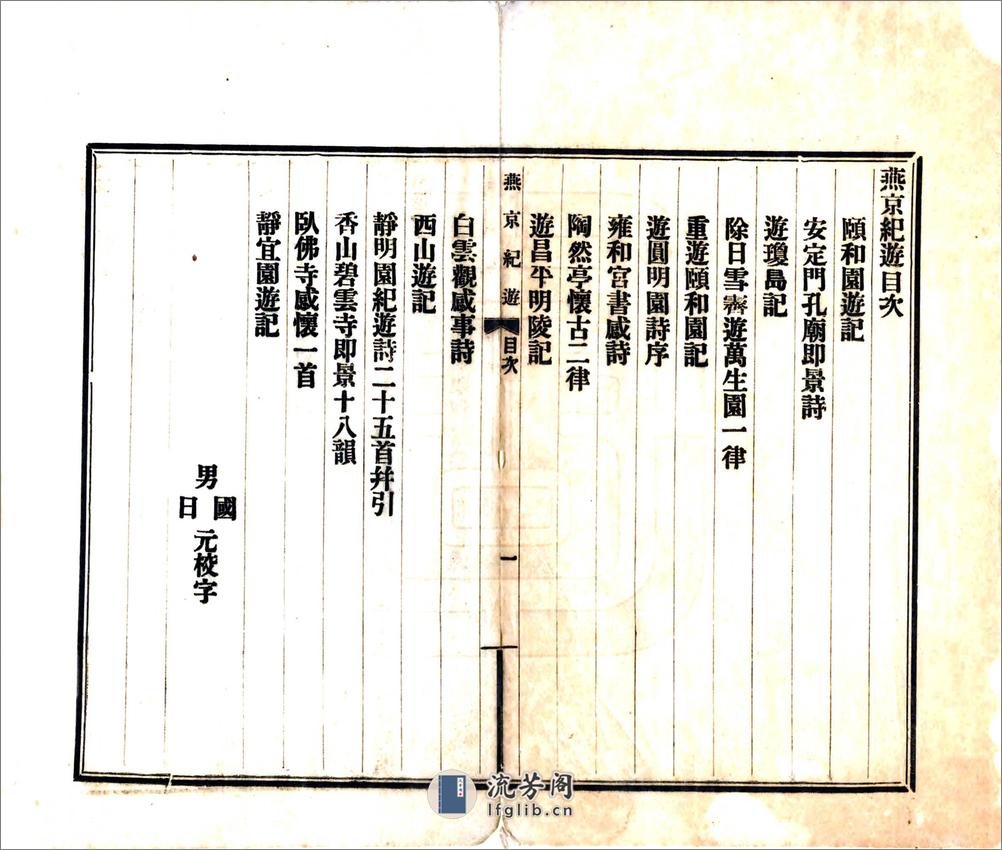 燕京紀遊目次
頤和園遊記
安定門孔廟即景詩
遊瓊島記
除日雪霽遊萬生園一律
重遊頤和園記
遊圓明園詩序
雍和宮書感詩
陶然亭懷古二律
遊昌平明陵記
燕京紀遊 目次 一
白雲觀感事詩
西山遊記
靜明園紀遊詩二十五首幷引
香山碧雲寺即景十八韻
臥佛寺感懷一首
靜宜園遊記
男 國日 元校字
流芳阁
lfglib.cn